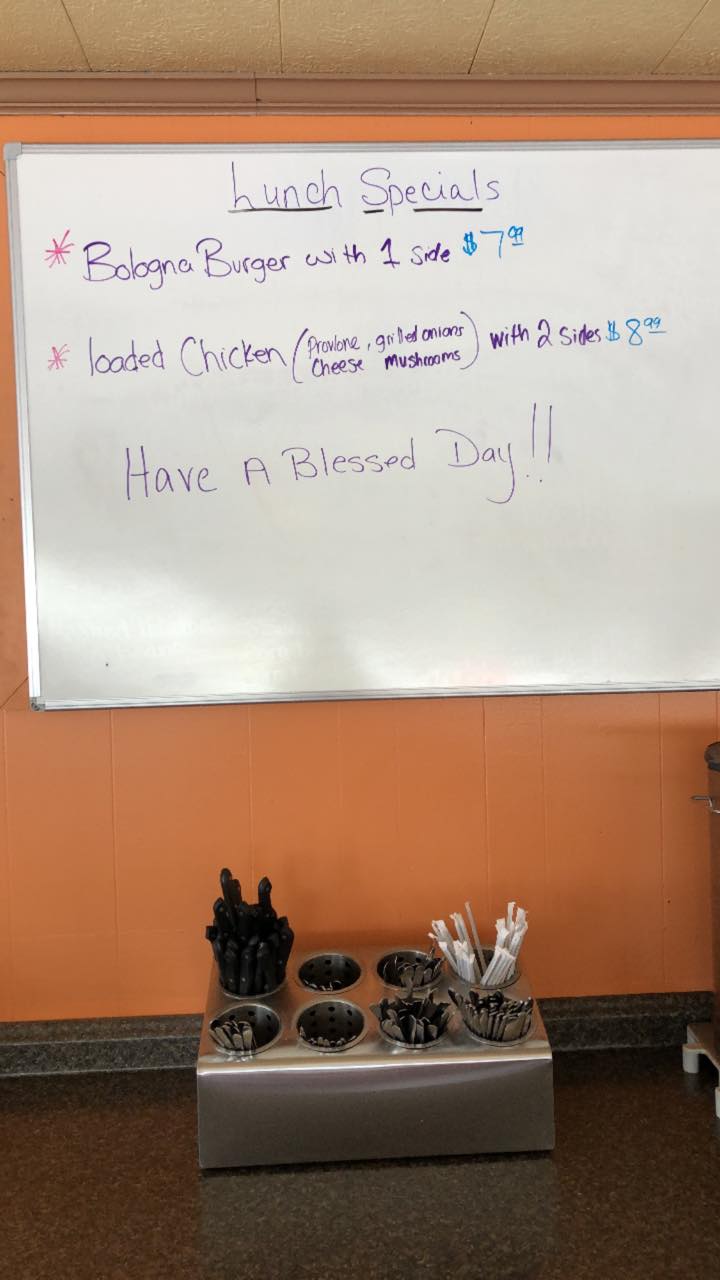 Lunch Specials
* Bologna Burger with 1 side $7.99
* loaded Chicken (Provlone, grilled onions
Cheese mushrooms) with 2 sides $8.99
Have A Blessed Day!!